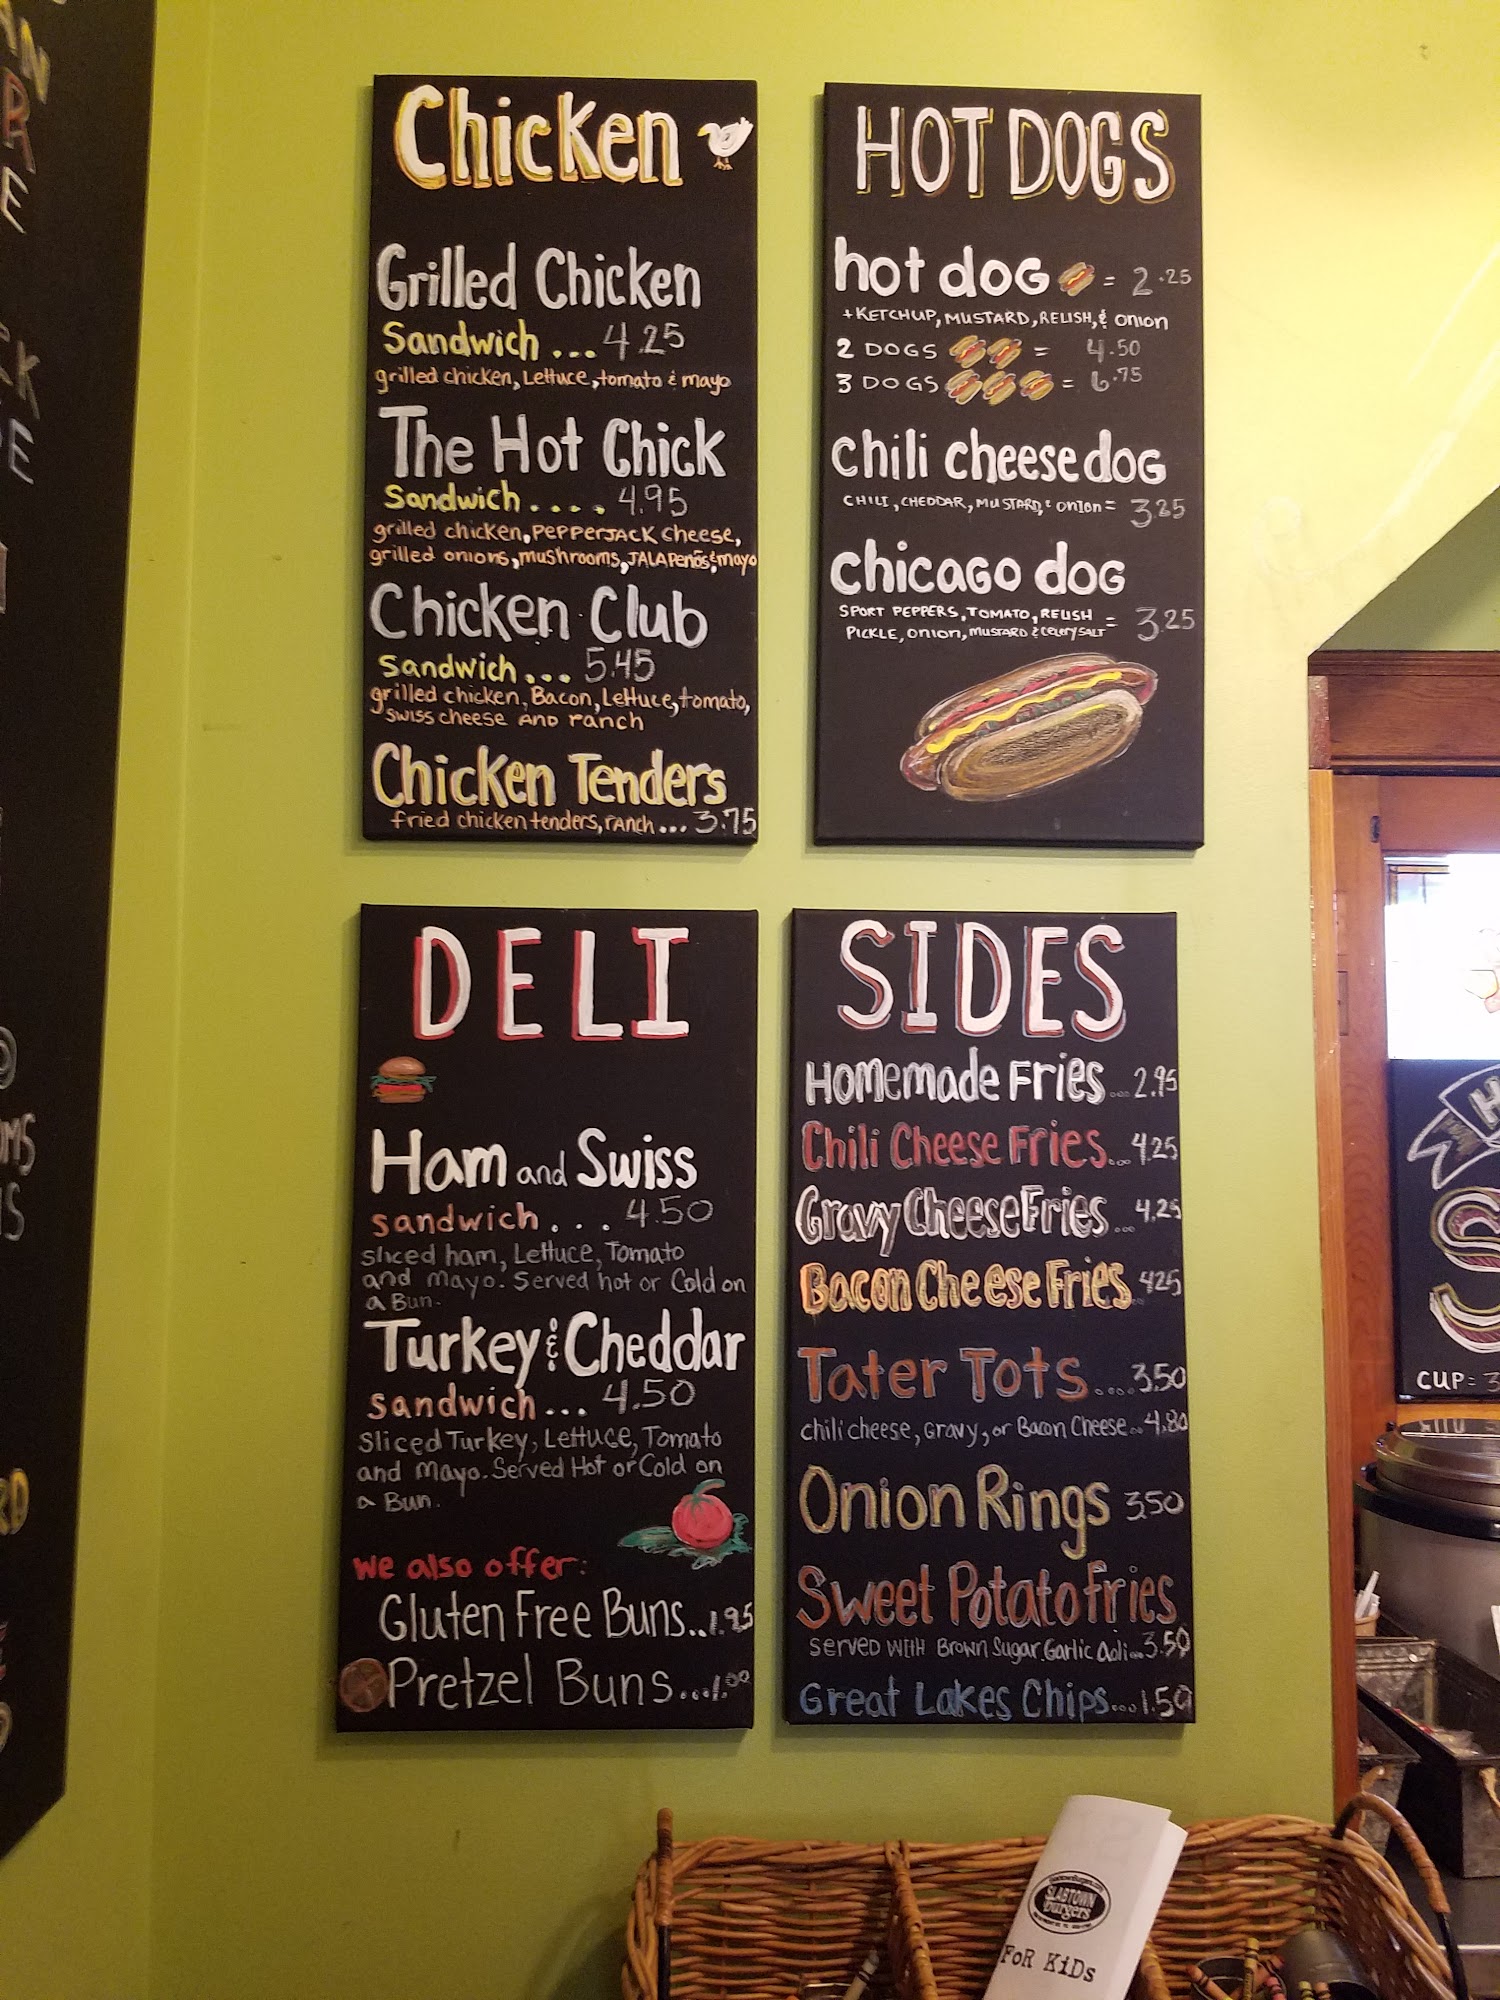 Chicken
Grilled Chicken
Sandwich ... 4.25
grilled chicken, Lettuce, tomato & mayo
The Hot Chick
Sandwich . . . . 4.95
grilled chicken, PEPPERJACK cheese,
grilled onions, mushrooms, JALAPEÑOS & mayo
Chicken Club
Sandwich ... 5.45
grilled chicken, Bacon, Lettuce, tomato,
swiss cheese AND ranch
Chicken Tenders
fried chicken tenders, ranch ... 3.75
HOT DOGS
hot dog = 2.25
+ KETCHUP, MUSTARD, RELISH, & onion
2 DOGS = 4.50
3 DOGS = 6.75
chili cheese dog
CHILI, CHEDDAR, MUSTARD, & onion = 3.25
chicago dog
SPORT PEPPERS, TOMATO, RELISH
PICKLE, onion, MUSTARD & CELERY SALT = 3.25
DELI
Ham and Swiss
sandwich . . . 4.50
sliced ham, Lettuce, Tomato
and mayo. Served hot or Cold on
a Bun.
Turkey & Cheddar
sandwich ... 4.50
Sliced Turkey, Lettuce, Tomato
and mayo. Served Hot or Cold on
a Bun.
we also offer:
Gluten Free Buns..1.95
Pretzel Buns...1.00
SIDES
Homemade Fries...2.95
Chili Cheese Fries...4.25
Gravy Cheese Fries...4.25
Bacon Cheese Fries 4.25
Tater Tots....3.50
chili cheese, Gravy, or Bacon Cheese...4.80
Onion Rings 3.50
Sweet Potato Fries
SERVED WITH Brown Sugar Garlic Aoli...3.50
Great Lakes Chips...1.50
CUP = 3
SLABTOWN
burgers
FoR KiDs